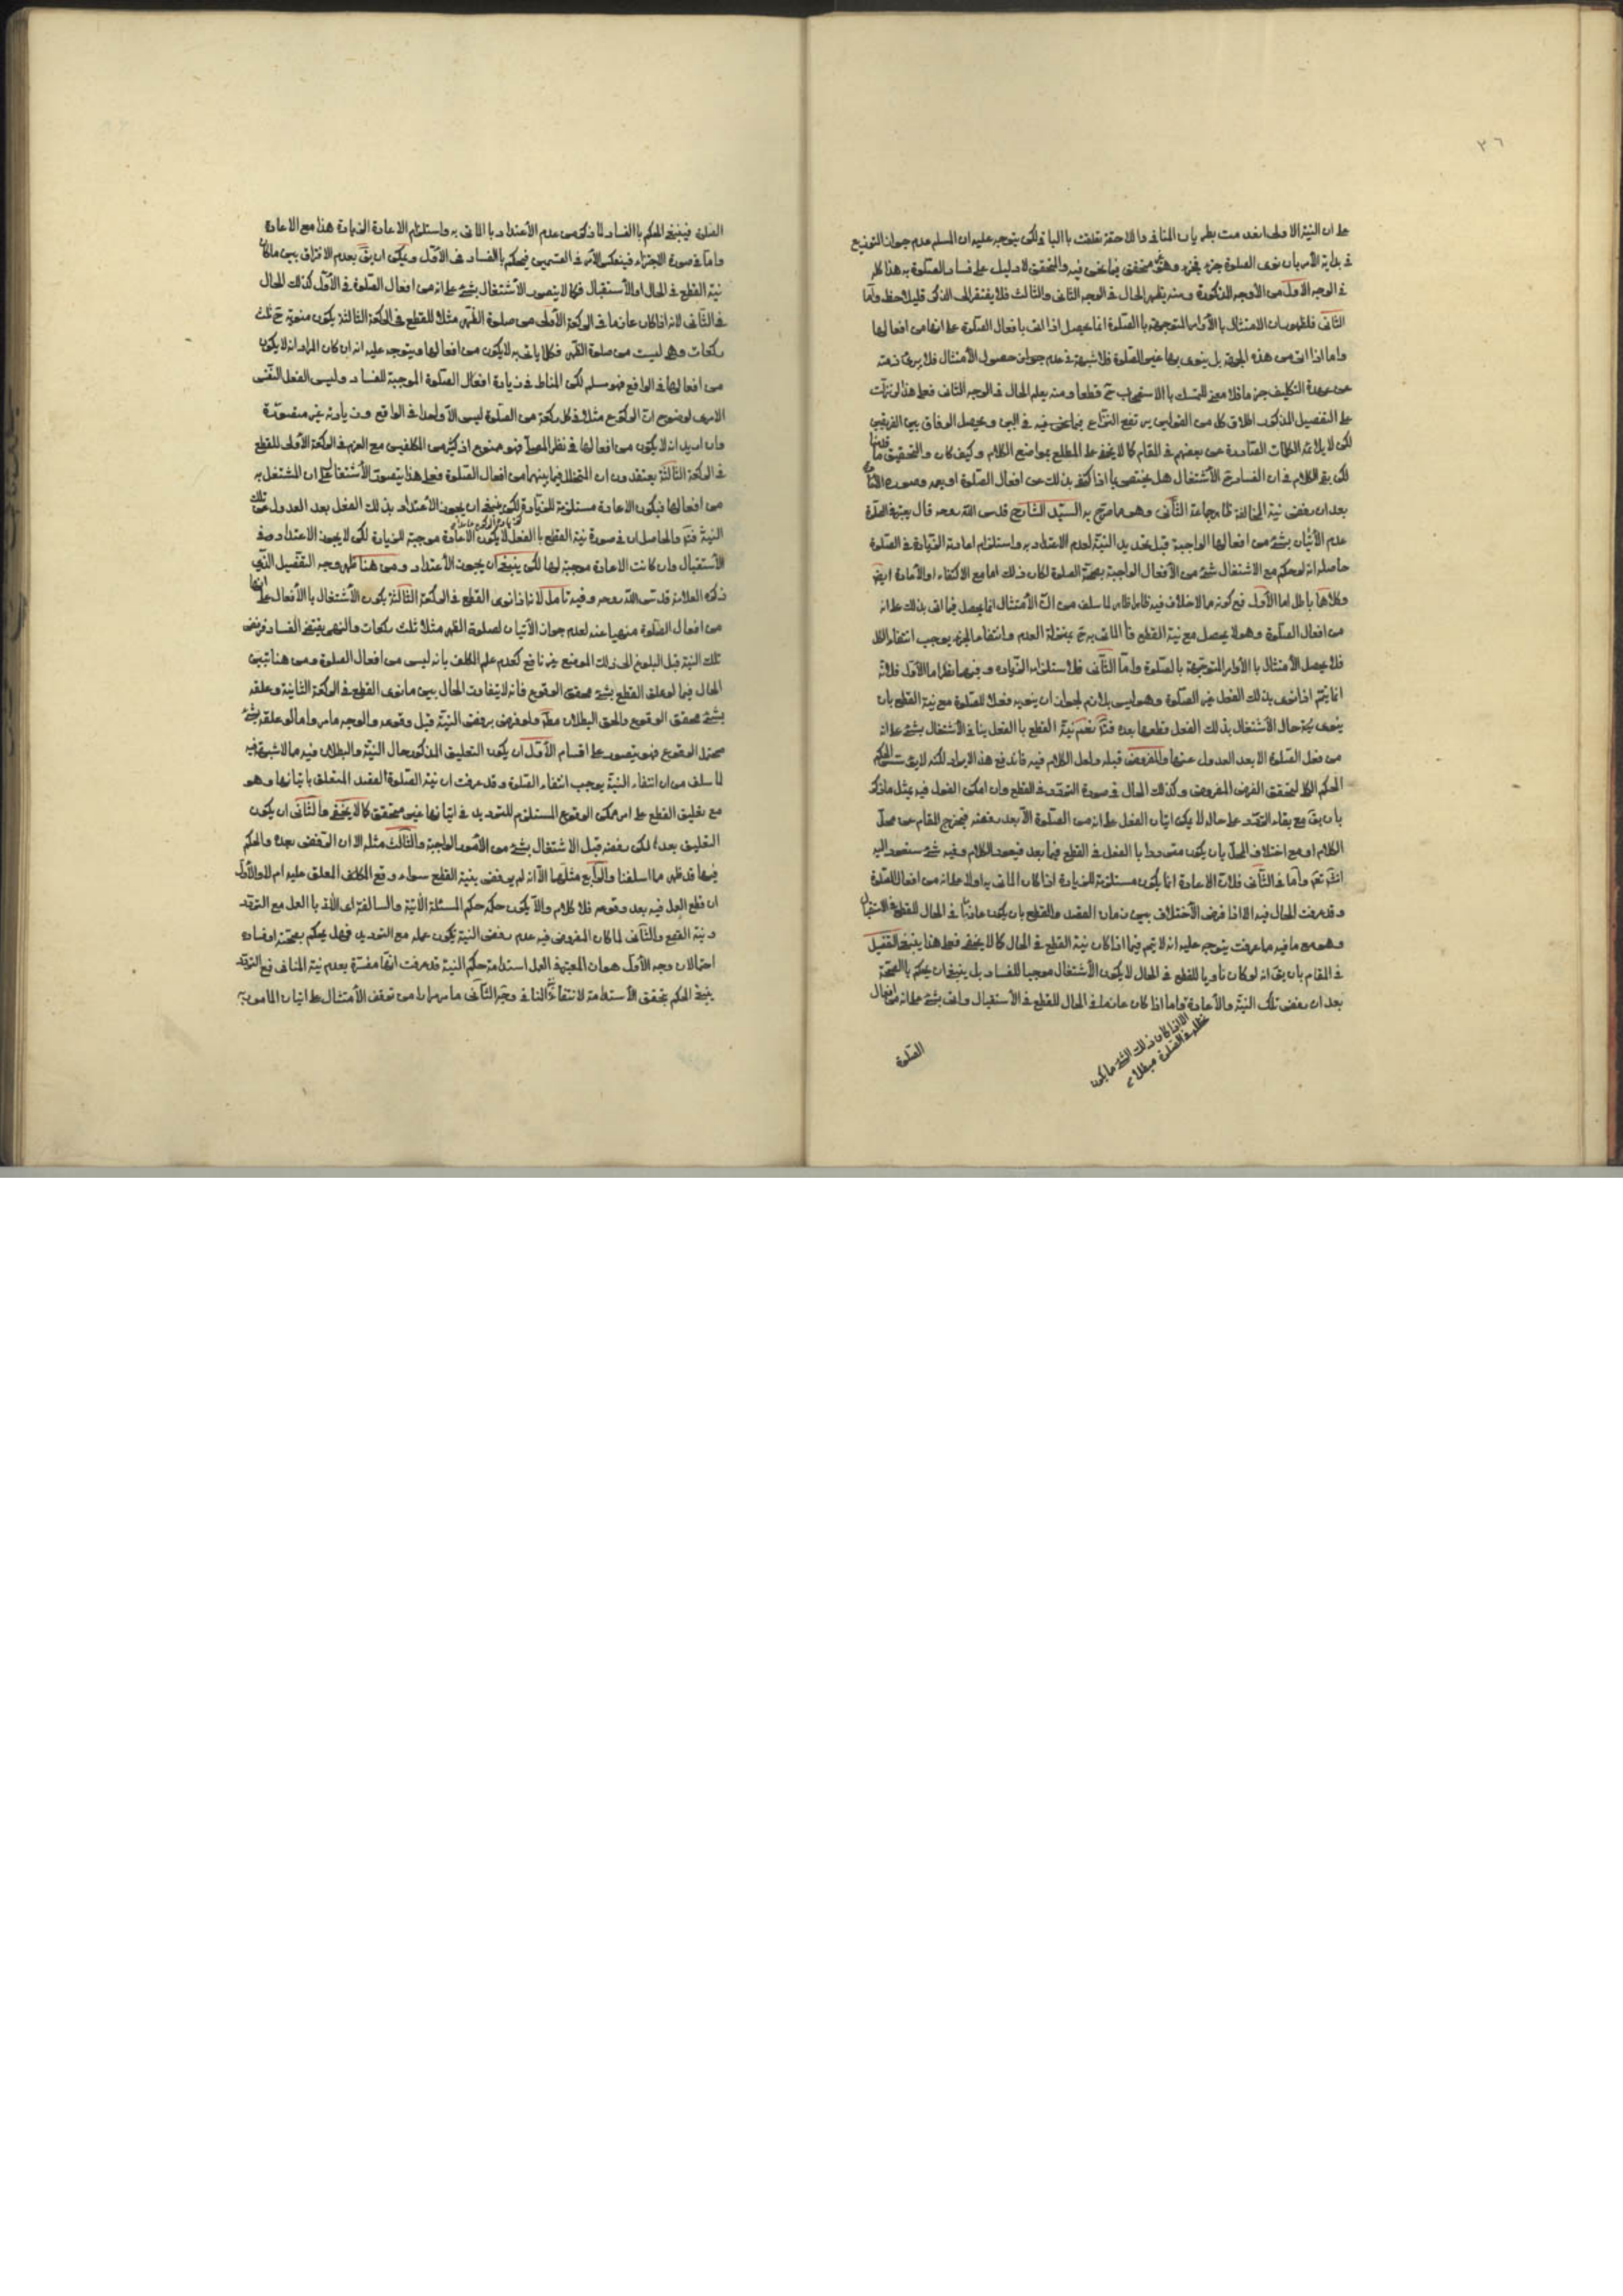 ٣٦
على ان النية الاولى انعدمت بطريان المنافي واللاحقة تعلقت بالباقي لكن يتوجه عليه ان المسلم عدم جواز التوزيع
في بداية الأمر بان نوى الصلوة جزء فجزء وهو متحقق فيما نحن فيه والتحقيق لا دليل على فساد الصلوة به هذا كله
في الوجه الاول من الأوجه المذكورة ومنه يظهر الحال في الوجه الثاني والثالث فلا يفتقر الى الذكر فليلاحظ واما
الثاني فلظهور ان الامتثال بالأوامر المتوجهة بالصلوة انما يحصل اذا اتى بافعال الصلوة على انها من افعالها
واما اذا اتى من هذه الجهة بل ينوي بها غير الصلوة فلا شبهة في عدم جواز حصول الأمتثال فلا يبرئ ذمته
عن عهدة التكليف جزما فلا معنى للتمسك بالاستصحاب ح قطعا ومنه يعلم الحال في الوجه الثاني فعلى هذا لو نزلت
على التفصيل المذكور اطلاق كل من القولين يرتفع النزاع فيما نحن فيه في البين ويحصل الوفاق بين الفريقين
لكن لا يلائمه الكلمات الصادرة عن بعضهم في المقام كما لا يخفى على المطلع بمواضع الكلام وكيف كان والتحقيق ما قدمنا
لكن بقي الكلام في ان الفساد ح الأشتغال هل يختص بما اذا اكتفى بذلك عن افعال الصلوة او يعمه وصورة الاتيان
بعد ان رفض نية المخالفة ظاهر جماعة الثاني وهو ما صرح به السيد الشارح قدس الله روحه قال يعتبر في الصلوة
عدم الأتيان بشئ من افعالها الواجبة قبل تجديد النية لعدم الاعتداد به واستلزام اعادته الزيادة في الصلوة
حاصله انه لو حكم مع الاشتغال بشئ من الأفعال الواجبة بصحة الصلوة لكان ذلك اما مع الاكتفاء او الأعادة ايض
وكلاهما باطل اما الأول فمع كونه مما لا خلاف فيه ظاهر لما سلف من ان الأمتثال انما يحصل فيما اتى بذلك على انه
من افعال الصلوة وهو لا يحصل مع نية القطع فالماتي به ح بمنزلة العدم وانتفاء الجزء يوجب انتفاء الكل
فلا يحصل الأمتثال بالأوامر المتوجهة بالصلوة واما الثاني فلاستلزامه الزيادة وفيهما نظر اما الأول فلانه
انما يتم اذا نوى بذلك الفعل غير الصلوة وهو ليس بلازم لجواز ان ينويه فعلا للصلوة مع نية القطع بان
ينوي في حال الأشتغال بذلك الفعل قطعها بعده فتأمل نعم نية القطع بالفعل ينافي الأشتغال بشئ على انه
من فعل الصلوة الا بعد العدول عنها والمفروض قبله ولعل الكلام فيه فاندفع هذا الايراد لكنه لا
الحكم الكلي لتحقق الفرض المفروض وكذلك الحال في صورة التردد في القطع وان امكن القول فيه بمثل ما ذكر
بان بقي مع بقاء التردد على حاله لا يمكن اتيان الفعل على انه من الصلوة الا بعد رفضه فيخرج المقام عن محل
الكلام او مع اختلاف المحل بان يكون مترددا بالفعل في القطع فيما بعد فيعود الكلام وفيه شئ ستعود اليه
واما في الثاني فلان الاعادة انما يكون مستلزمة للزيادة اذا كان الماتي به اولا على انه من افعال الصلوة
وقد عرفت الحال فيه الا اذا فرض الأختلاف بين زمان القصد والقطع بان يكون عازما في الحال للقطع في الاستقبال
وهو مع ما فيه مما عرفت يتوجه عليه انه لا يتم فيما اذا كان نية القطع في الحال كما لا يخفى فعلى هذا ينبغي التفصيل
في المقام بان يقال انه لو كان ناويا للقطع في الحال لا يكون الأشتغال موجبا للفساد بل ينبغي ان يحكم بالصحة
بعد ان رفض تلك النية والأعادة واما اذا كان عازما في الحال للقطع في الأستقبال واتى بشئ على انه من افعال
الا اذا كان ذلك الشئ مما يكون
فعله في الصلوة مبطلا
الصلوة
الصلوة فينبغي الحكم بالفساد لما ذكر من عدم الأعتداد بالماتي به واستلزام الاعادة الزيادة هذا مع الاعادة
واما في صورة الاجتزاء فينعكس الأمر في القسمين فيحكم بالفساد في الأول ويمكن ان يقال بعدم الافتراق بين ما كان
نية القطع في الحال او الأستقبال فكما لا يتصور الأشتغال بشئ على انه من افعال الصلوة في الأول كذلك الحال
في الثاني لانه اذا كان عازما في الركعة الأولى من صلوة الظهر مثلا للقطع في الركعة الثالثة يكون منويه ح ثلث
ركعات وهي ليست من صلوة الظهر فكلما ياتي به لا يكون من افعالها ويتوجه عليه انه ان كان المراد انه لا يكون
من افعالها في الواقع فهو مسلم لكن المناط في زيادة افعال الصلوة الموجبة للفساد وليس الفعل النفس
الامري لوضوح ان الركوع مثلا في كل ركعة من الصلوة ليس الا واحدا في الواقع وزيادته غير متصورة
وان اريد انه لا يكون من افعالها في نظر المصلي فهو ممنوع اذ كثير من المكلفين مع العزم في الركعة الأولى للقطع
في الركعة الثالثة يعتقدون ان المتخلل فيما بينهما من افعال الصلوة فعلى هذا يتصور الأشتغال على ان المشتغل به
من افعالها فيكون الاعادة مستلزمة للزيادة لكن ينبغي ان يجوز الأعتداد بذلك الفعل بعد العدول عن تلك
النية فتأمل والحاصل ان في صورة نية القطع بالفعل لا يكون الأعادة موجبة للزيادة لكن لا يجوز الاعتداد وفي
الأستقبال وان كانت الاعادة موجبة لها لكن ينبغي ان يجوز الأعتداد ومن هنا ظهر وجه التفصيل الذي
ذكره العلامة قدس الله روحه وفيه تأمل لانه اذا نوى القطع في الركعة الثالثة يكون الأشتغال بالأفعال على انها
من افعال الصلوة منهيا عنه لعدم جواز الأتيان لصلوة الظهر مثلا ثلث ركعات والنهي يقتضي الفساد فرفض
تلك النية قبل البلوغ الى ذلك الموضع غير نافع كعدم علم المكلف بانه ليس من افعال الصلوة ومن هنا تبين
الحال فيما لو علق القطع بشئ محقق الوقوع فانه لا يتفاوت الحال بين ما نوى القطع في الركعة الثانية وعلقه
بشئ محقق الوقوع والحق البطلان مطلقا ولو فرض رفض النية قبل وقوعه والوجه ما مر واما لو علقه بشئ
محتمل الوقوع فهو يتصور على اقسام الأول ان يكون التعليق المذكور حال النية والبطلان فيه مما لا شبهة فيه
لما سلف من ان انتفاء النية يوجب انتفاء الصلوة وقد عرفت ان نية الصلوة القصد المتعلق باتيانها وهو
مع تعليق القطع على امر ممكن الوقوع المستلزم للترديد في اتيانها غير متحقق كما لا يخفى والثاني ان يكون
التعليق بعدها لكن رفضه قبل الاشتغال بشئ من الأمور الواجبة والثالث مثله الا ان الرفض بعده والحكم
فيهما قد ظهر مما اسلفنا والرابع مثلهما الا انه لم يرفض نية القطع سواء وقع المعلق عليه ام لا والأول
ان قطع العمل فيه بعد وقوعه فلا كلام والا يكون حكمه حكم المسئلة الآتية والسالفة اي الأخذ بالعمل مع التردد
ونية القطع والثاني لما كان المفروض فيه عدم رفض النية يكون عمله مع الترديد فهل يحكم بصحته او فساده
احتمالان وجه الأول هو ان المعتبر في العمل استدامة حكم النية قد عرفت انها مفسرة بعدم نية المنافي فمع التردد
ينبغي الحكم بتحقق الأستدامة لانتفاء نية المنافي وجه الثاني ما مر مرارا من توقف الأمتثال على اتيان المأمور به